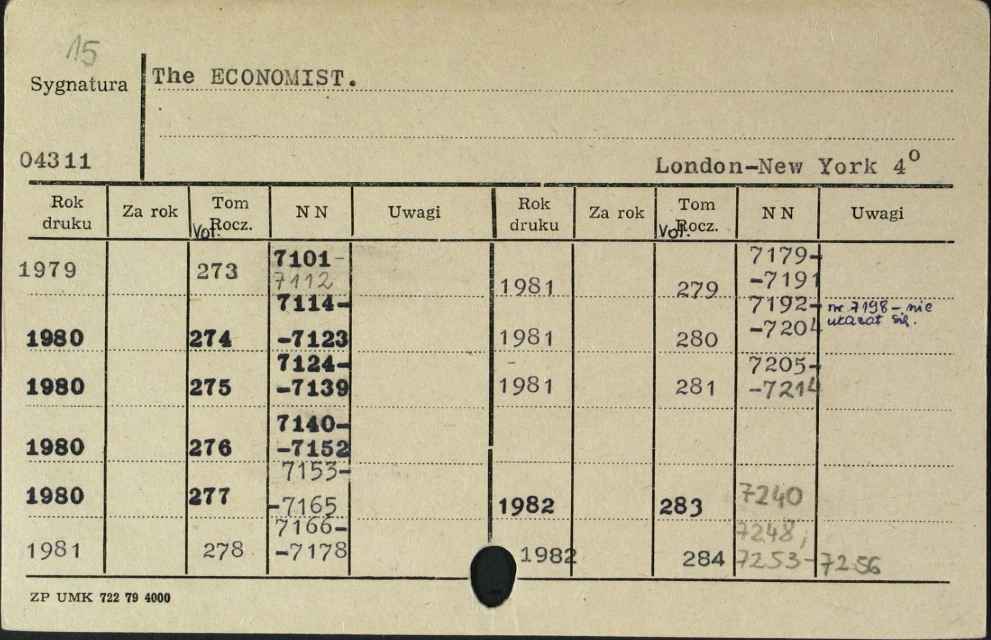 15
Sygnatura The ECONOMIST.
04311 London-New York 4°
Rok druku Za rok Tom Vol. Rocz. NN Uwagi Rok druku Za rok Tom Vol. Rocz. NN Uwagi
1979 273 7101-
7112
1980 274 7114-
-7123
1980 275 7124-
-7139
1980 276 7140-
-7152
1980 277 7153-
-7165
1981 278 7166-
-7178
1981 279 7179-
-7191
1981 280 7192-
-7204 nr 7198 - nie
ukazał się.
1981 281 7205-
-7214
1982 283 7240
1982 284 7248,
7253-7256
ZP UMK 722 79 4000